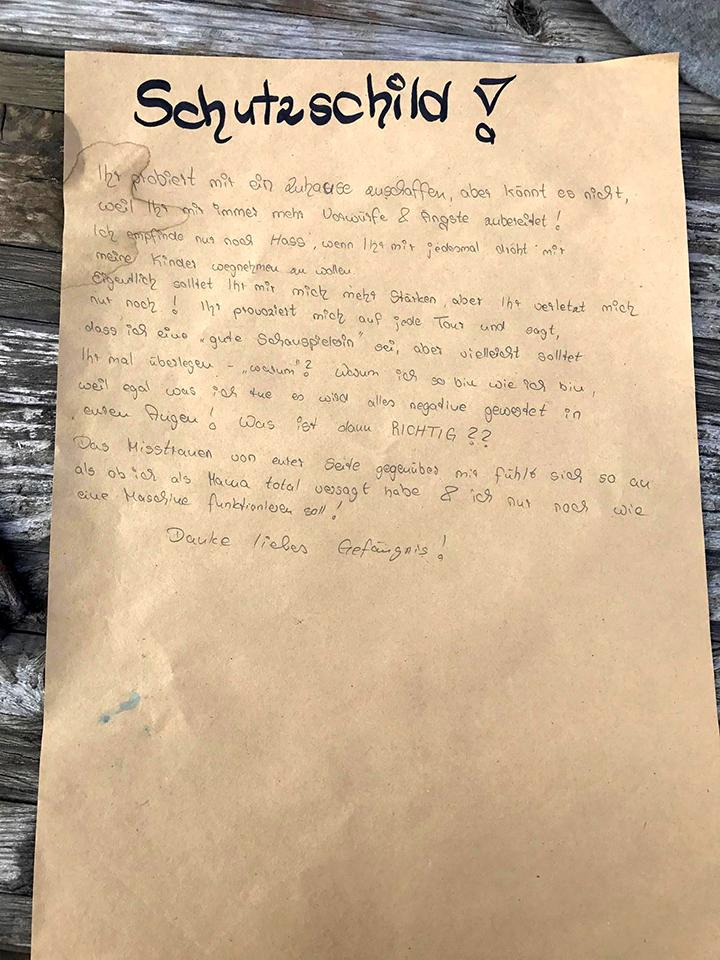 Schutzschild !
Ihr probiert mir ein Zuhause zuschaffen, aber könnt es nicht,
weil Ihr mir immer mehr Vorwürfe & Ängste zubereitet !
Ich empfinde nur noch Hass, wenn Ihr mir jedesmal droht mir
meine Kinder wegnehmen zu wollen.
Eigentlich solltet Ihr mir mich mehr Stärken, aber Ihr verletzt mich
nur noch ! Ihr provoziert mich auf jede Tour und sagt,
dass ich eine „gute Schauspielerin" sei, aber vielleicht solltet
Ihr mal überlegen - „warum"? Warum ich so bin wie ich bin,
weil egal was ich tue es wird alles negative gewertet in
euren Augen ! Was ist dann RICHTIG ??
Das Misstrauen von eurer Seite gegenüber mir fühlt sich so an
als ob ich als Mama total versagt habe & ich nur noch wie
eine Maschine funktionieren soll !
Danke liebes Gefängnis !